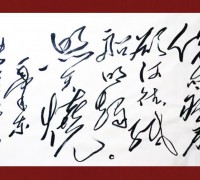 借问瘟君
欲何往纸
船明烛
照天烧。
毛泽东